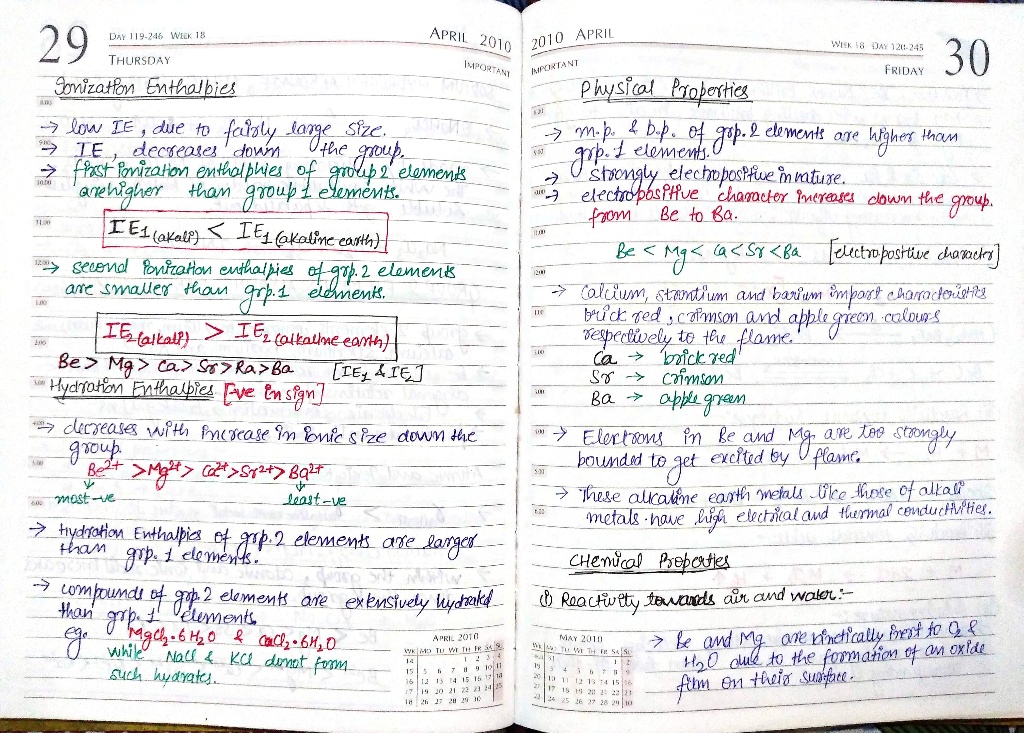 29
DAY 119-246 WEEK 18
THURSDAY
APRIL 2010
IMPORTANT
Ionization Enthalpies
→ low IE, due to fairly large size.
→ IE, decreases down the group.
→ first ionization enthalphies of group 2 elements
arehigher than group 1 elements.
IE1 (akali) < IE1 (akaline earth)
→ second ionization enthalpies of grp. 2 elements
are smaller than grp. 1 elements.
IE2 (alkali) > IE2 (alkaline earth)
Be > Mg > Ca > Sr > Ra > Ba [IE1 & IE2]
Hydration Enthalpies [-ve in sign]
→ decreases with increase in ionic size down the
group.
Be2+ > Mg2+ > Ca2+ > Sr2+ > Ba2+
most -ve least -ve
→ Hydration Enthalpies of grp. 2 elements are larger
than grp. 1 elements.
→ compounds of grp. 2 elements are extensively hydrated
than grp. 1 elements
eg. MgCl2.6H2O & CaCl2.6H2O
while NaCl & KCl donot form
such hydrates.
APRIL 2010
WK MO TU WE TH FR SA SU
14 1 2 3 4
15 5 6 7 8 9 10 11
16 12 13 14 15 16 17 18
17 19 20 21 22 23 24 25
18 26 27 28 29 30
2010 APRIL
IMPORTANT
WEEK 18 DAY 120-245
FRIDAY
30
Physical Properties
→ m.p. & b.p. of grp. 2 elements are higher than
grp. 1 elements.
→ strongly electropositive in nature.
→ electropositive character increases down the group.
from Be to Ba.
Be < Mg < Ca < Sr < Ba [electropositive character]
→ Calcium, strontium and barium impart characteristics
brick red, crimson and apple green colours
respectively to the flame.
Ca → brick red
Sr → crimson
Ba → apple green
→ Electrons in Be and Mg are too strongly
bounded to get excited by flame.
→ These alkaline earth metals like those of alkali
metals have high electrical and thermal conductivities.
CHemical Properties
(i) Reactivity towards air and water:-
→ Be and Mg are kinetically inert to O2 &
H2O due to the formation of an oxide
film on their surface.
MAY 2010
WK MO TU WE TH FR SA SU